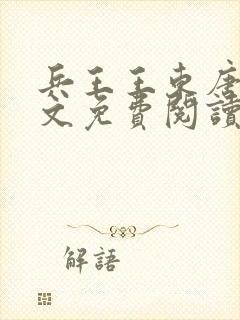 兵王王東唐
文免費閱讀
解語